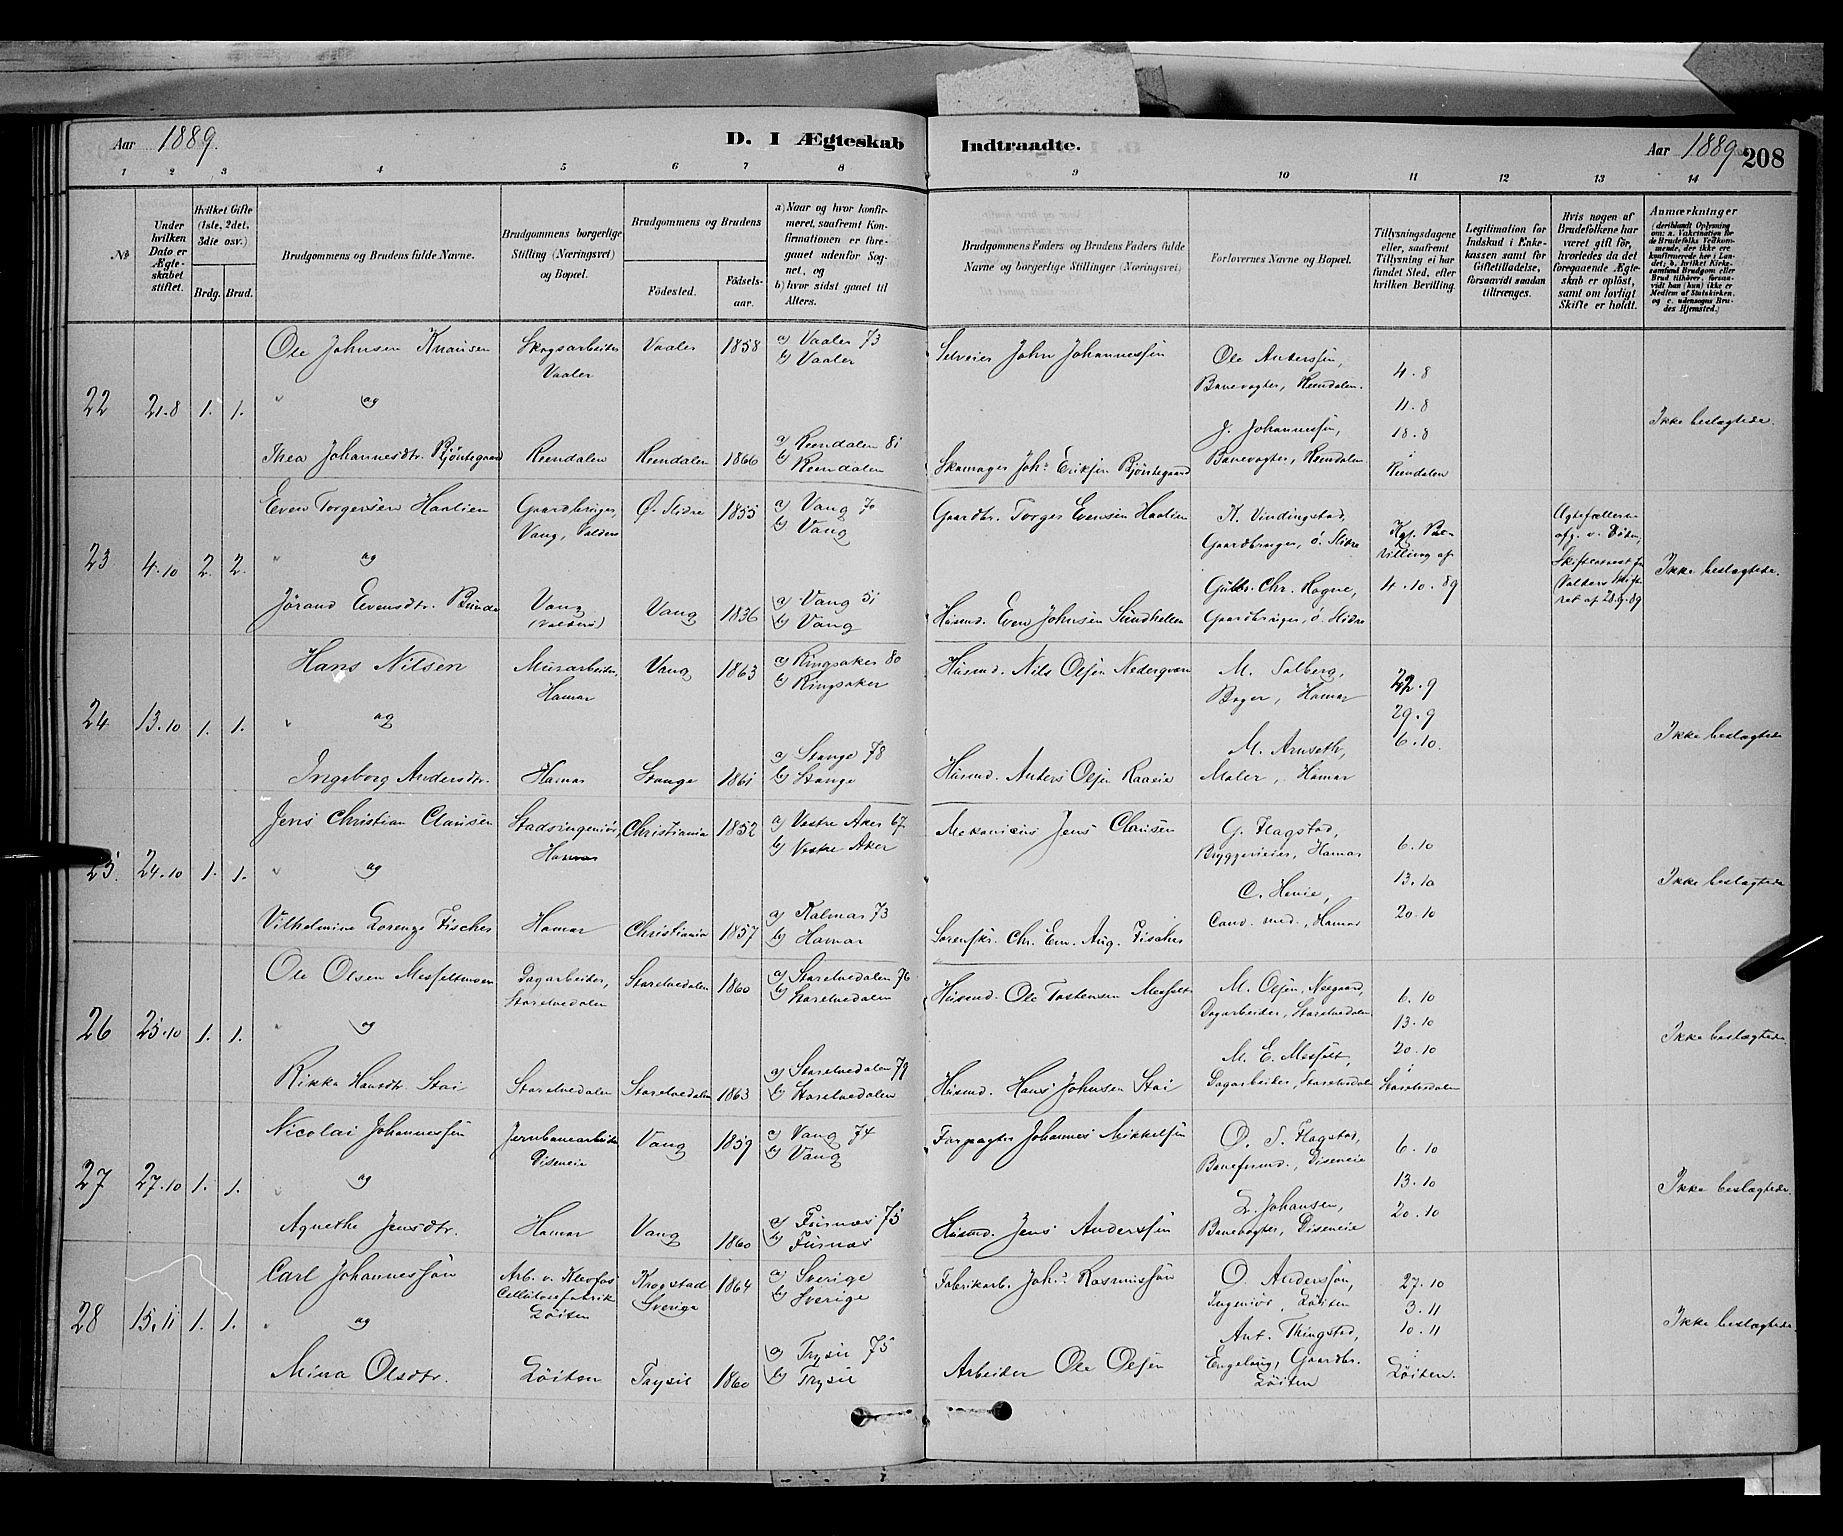 Aar 1889. D. I Ægteskab Indtraadte. Aar 1889 208
1 2 3 4 5 6 7 8 9 10 11 12 13 14
No
Under hvilken Dato er Ægteskabet stiftet.
Hvilket Gifte (1ste, 2det, 3die osv.)
Brdg. Brud.
Brudgommens og Brudens fulde Navne.
Brudgommens borgerlige Stilling (Næringsvei) og Bopæl.
Brudgommens og Brudens
Födested. Födselsaar.
a) Naar og hvor konfirmeret, saafremt Konfirmationen er foregaaet udenfor Sognet, og
b) hvor sidst gaaet til Alters.
Brudgommens Faders og Brudens Faders fulde Navne og borgerlige Stillinger (Næringsvei)
Forlovernes Navne og Bopæl.
Tillysningsdagene eller, saafremt Tillysning ei har fundet Sted, efter hvilken Bevilling.
Legitimation for Indskud i Enkekassen samt for Giftetilladelse, forsaavidt saadan tiltrænges.
Hvis nogen af Brudefolkene har været gift för, hvorledes da det foregaaende Ægteskab er oplöst, samt om lovligt Skifte er holdt.
Anmærkninger (deriblandt Oplysning om: a. Vakcination for de Brudefolks Vedkommende, der ikke ere konfirmerede her i Landet; b. hvilket Kirkesamfund Brudgom eller Brud tilhörer, forsaavidt han (hun) ikke er Medlem af Statskirken, og c. udensogns Brudes Hjemsted.)
22 21.8 1. 1.
Ole Johnsen Knausen Skogsarbeider Vaaler Vaaler 1858 a) Vaaler 73 b) Vaaler
Selveier John Johannessön
Ole Anderssön, Banevogter, Reendalen.
" og
Thea Johannesdtr. Bjöntegaard Reendalen Reendalen 1866 a) Reendalen 81 b) Reendalen
Skomager Johs. Eriksen Bjöntegaard
J. Johannessön, Banevogter, Reendalen
4.8
11.8
18.8
i
Reendalen
Ikke beslægtede.
23 4.10 2. 2.
Even Torgersen Haalien Gaardbruger, Vang, Valders Ø. Slidre 1855 a) Vang 70 b) Vang
Gaardbr. Torger Evensen Haalien
K. Vindingstad, Gaardbruger, ö. Slidre
" og
Jörand Evensdtr. Bunde Vang (Valders) Vang 1836 a) Vang 51 b) Vang
Husmd. Even Johnsen Sundhellen
Gulbr. Chr. Hagne, Gaardbruger, ö. Slidre
Kgl. Bevilling af
4.10.89
Ægtefællerne
afg. v. Döden,
Skifteattest fra
Valders Skifteret af 28.9.89
Ikke beslægtede.
24 13.10 1. 1.
Hans Nilsen Murarbeider, Hamar Vang 1863 a) Ringsaker 80 b) Ringsaker
Husmd. Nils Olsen Nedergaard
M. Solberg, Bager, Hamar
" og
Ingeborg Andersdtr. Hamar Stange 1861 a) Stange 78 b) Stange
Husmd. Anders Olsen Raaeie
M. Arnseth, Maler, Hamar
22.9
29.9
6.10.
Ikke beslægtede
25. 24.10 1. 1.
Jens Christian Clausen Stadsingeniör, Hamar Christiania 1852 a) Vestre Aker 67 b) Vestre Aker
Mekanicus Jens Clausen
G. Flagstad, Bryggerieier, Hamar
" og
Vilhelmine Lorenze Fischer Hamar Christiania 1857 a) Kalmar 73 b) Hamar
Sorenskr. Chr. Em. Aug. Fischer
C. Henie, Cand. med., Hamar
6.10
13.10
20.10
Ikke beslægtede
26 25.10 1. 1.
Ole Olsen Messeltmoen Dagarbeider, Storelvedalen Storelvedalen 1860 a) Storelvedalen 76 b) Storelvedalen
Husmd. Ole Tostensen Messelt
M. Olsen, Neegaard, Dagarbeider, Storelvedalen
" og
Rikke Hansdtr. Stai Storelvedalen Storelvedalen 1863 a) Storelvedalen 79 b) Storelvedalen
Husmd. Hans Johnsen Stai
M. E. Messelt, Dagarbeider, Storelvedalen
6.10
13.10
20.10
i
Storelvedalen
Ikke beslægtede.
27 27.10 1. 1.
Nicolai Johannessön Jernbanearbeider Diseneie Vang 1859 a) Vang 74 b) Vang
Forpagter Johannes Mikkelsen
O. S. Flagstad, Baneformd., Diseneie
" og
Agnethe Jensdtr. Hamar Vang 1860 a) Furnæs 75 b) Furnæs
Husmd. Jens Anderssön
L. Johansen, Banevogter, Diseneie
6.10
13.10
20.10
Ikke beslægtede.
28 15.11 1. 1.
Carl Johannessön Arb. v. Klevfos Cellulosefabrik Löiten Krogstad Sverige 1864 a) Sverige b) Sverige
Fabrikarb. Johs. Rasmussön
O. Anderssön, Ingeniör, Löiten
" og
Mina Olsdtr. Löiten Trysil 1860 a) Trysil 75 b) Trysil
Arbeider Ole Olsen
Ant. Thingstad, Engelaug, Gaardbr. Löiten
27.10
3.11
10.11
i
Löiten.
Ikke beslægtede.